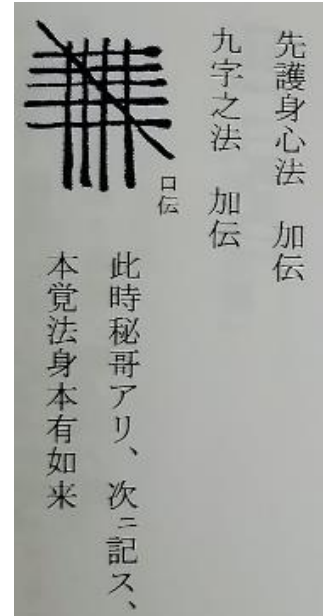 先護身心法　加伝
九字之法　加伝
口伝
此時秘哥アリ、次ニ記ス、
本覚法身本有如来